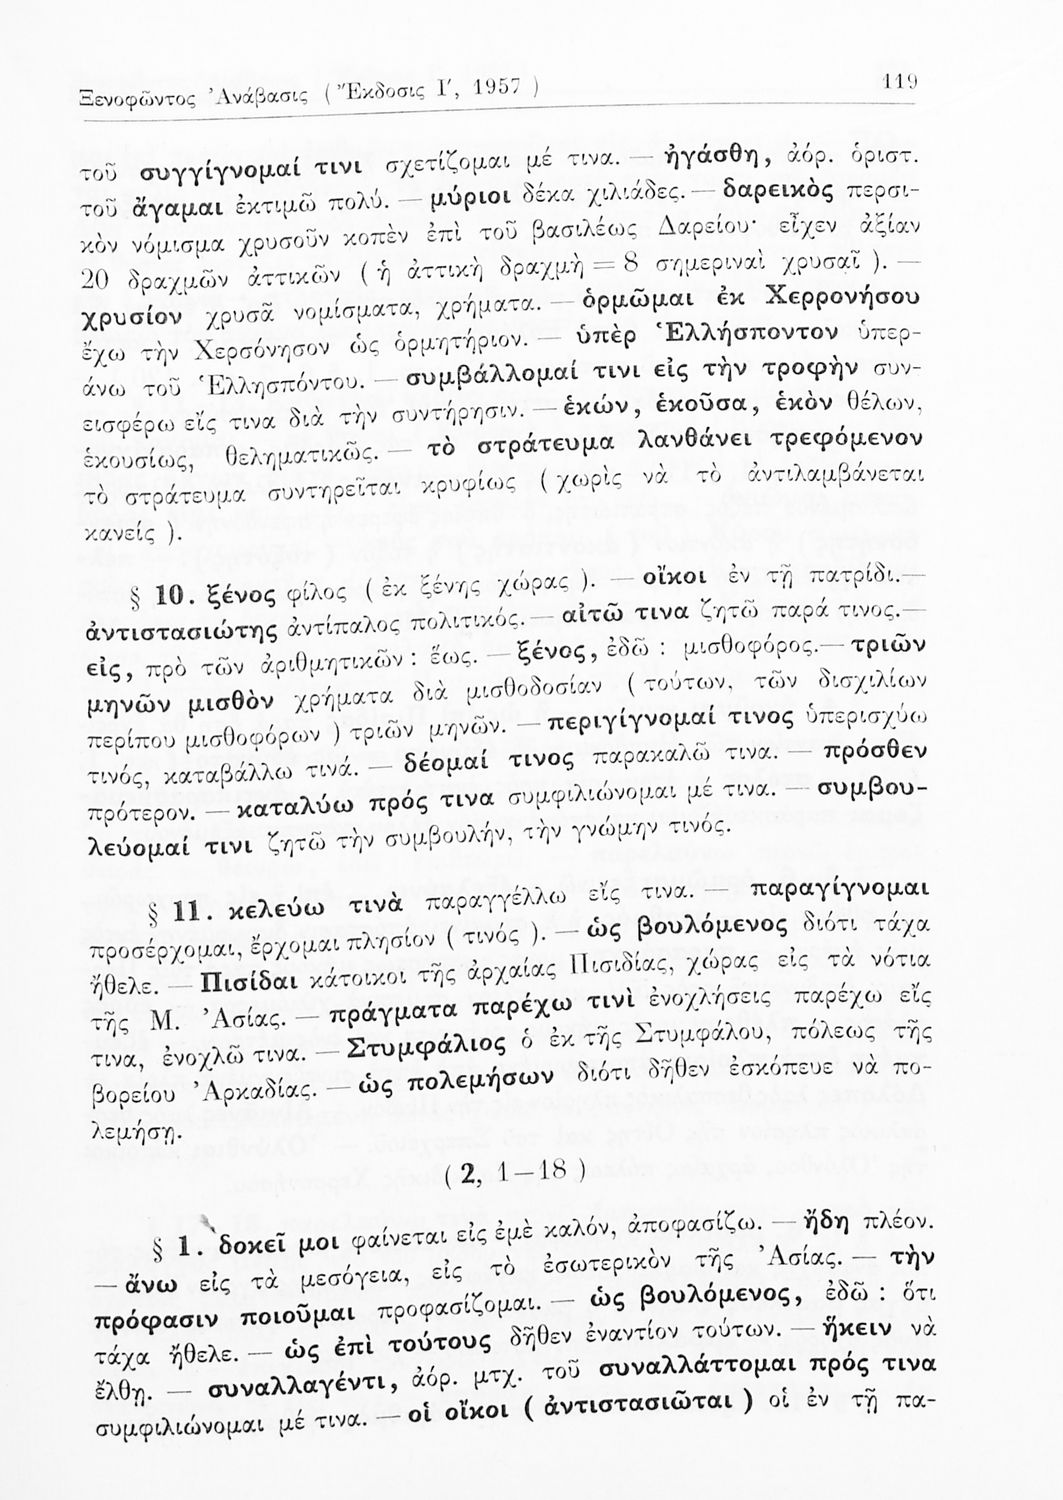 Ξενοφῶντος Ἀνάβασις ( Ἔκδοσις Ι′, 1957 ) 119
τοῦ συγγίγνομαί τινι σχετίζομαι μέ τινα. — ἠγάσθη, ἀόρ. ὁριστ.
τοῦ ἄγαμαι ἐκτιμῶ πολύ. — μύριοι δέκα χιλιάδες. — δαρεικὸς περσι-
κὸν νόμισμα χρυσοῦν κοπὲν ἐπὶ τοῦ βασιλέως Δαρείου· εἶχεν ἀξίαν
20 δραχμῶν ἀττικῶν ( ἡ ἀττικὴ δραχμὴ = 8 σημεριναὶ χρυσαῖ ). —
χρυσίον χρυσᾶ νομίσματα, χρήματα. — ὁρμῶμαι ἐκ Χερρονήσου
ἔχω τὴν Χερσόνησον ὡς ὁρμητήριον. — ὑπὲρ Ἑλλήσποντον ὑπερ-
άνω τοῦ Ἑλλησπόντου. — συμβάλλομαί τινι εἰς τὴν τροφὴν συν-
εισφέρω εἴς τινα διὰ τὴν συντήρησιν. — ἑκών, ἑκοῦσα, ἑκὸν θέλων,
ἑκουσίως, θεληματικῶς. — τὸ στράτευμα λανθάνει τρεφόμενον
τὸ στράτευμα συντηρεῖται κρυφίως ( χωρὶς νὰ τὸ ἀντιλαμβάνεται
κανείς ).
§ 10. ξένος φίλος ( ἐκ ξένης χώρας ). — οἴκοι ἐν τῇ πατρίδι.—
ἀντιστασιώτης ἀντίπαλος πολιτικός. — αἰτῶ τινα ζητῶ παρά τινος.—
εἰς, πρὸ τῶν ἀριθμητικῶν : ἕως. — ξένος, ἐδῶ : μισθοφόρος.— τριῶν
μηνῶν μισθὸν χρήματα διὰ μισθοδοσίαν ( τούτων, τῶν δισχιλίων
περίπου μισθοφόρων ) τριῶν μηνῶν. — περιγίγνομαί τινος ὑπερισχύω
τινός, καταβάλλω τινά. — δέομαί τινος παρακαλῶ τινα. — πρόσθεν
πρότερον. — καταλύω πρός τινα συμφιλιώνομαι μέ τινα. — συμβου-
λεύομαί τινι ζητῶ τὴν συμβουλήν, τὴν γνώμην τινός.
§ 11. κελεύω τινὰ παραγγέλλω εἴς τινα. — παραγίγνομαι
προσέρχομαι, ἔρχομαι πλησίον ( τινός ). — ὡς βουλόμενος διότι τάχα
ἤθελε. — Πισίδαι κάτοικοι τῆς ἀρχαίας Πισιδίας, χώρας εἰς τὰ νότια
τῆς Μ. Ἀσίας. — πράγματα παρέχω τινὶ ἐνοχλήσεις παρέχω εἴς
τινα, ἐνοχλῶ τινα. — Στυμφάλιος ὁ ἐκ τῆς Στυμφάλου, πόλεως τῆς
βορείου Ἀρκαδίας. — ὡς πολεμήσων διότι δῆθεν ἐσκόπευε νὰ πο-
λεμήσῃ.
( 2, 1—18 )
§ 1. δοκεῖ μοι φαίνεται εἰς ἐμὲ καλόν, ἀποφασίζω. — ἤδη πλέον.
— ἄνω εἰς τὰ μεσόγεια, εἰς τὸ ἐσωτερικὸν τῆς Ἀσίας. — τὴν
πρόφασιν ποιοῦμαι προφασίζομαι. — ὡς βουλόμενος, ἐδῶ : ὅτι
τάχα ἤθελε. — ὡς ἐπὶ τούτους δῆθεν ἐναντίον τούτων. — ἥκειν νὰ
ἔλθῃ. — συναλλαγέντι, ἀόρ. μτχ. τοῦ συναλλάττομαι πρός τινα
συμφιλιώνομαι μέ τινα. — οἱ οἴκοι ( ἀντιστασιῶται ) οἱ ἐν τῇ πα-